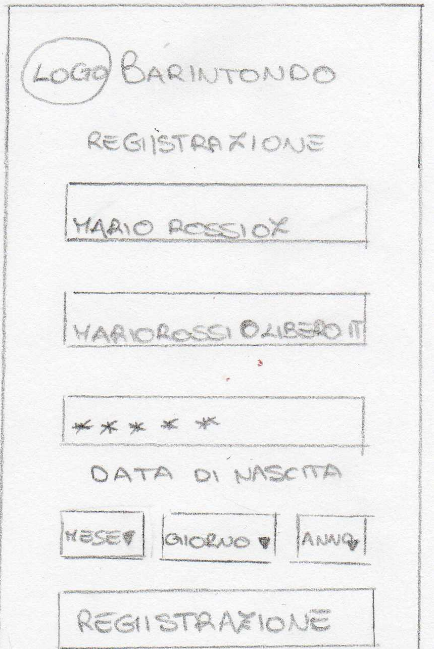 LOGO BARINTONDO
REGIISTRAZIONE
MARIO ROSSI02
MARIOROSSI@LIBERO IT
*****
DATA DI NASCITA
MESE▼ GIORNO ▼ ANNO▼
REGIISTRAZIONE